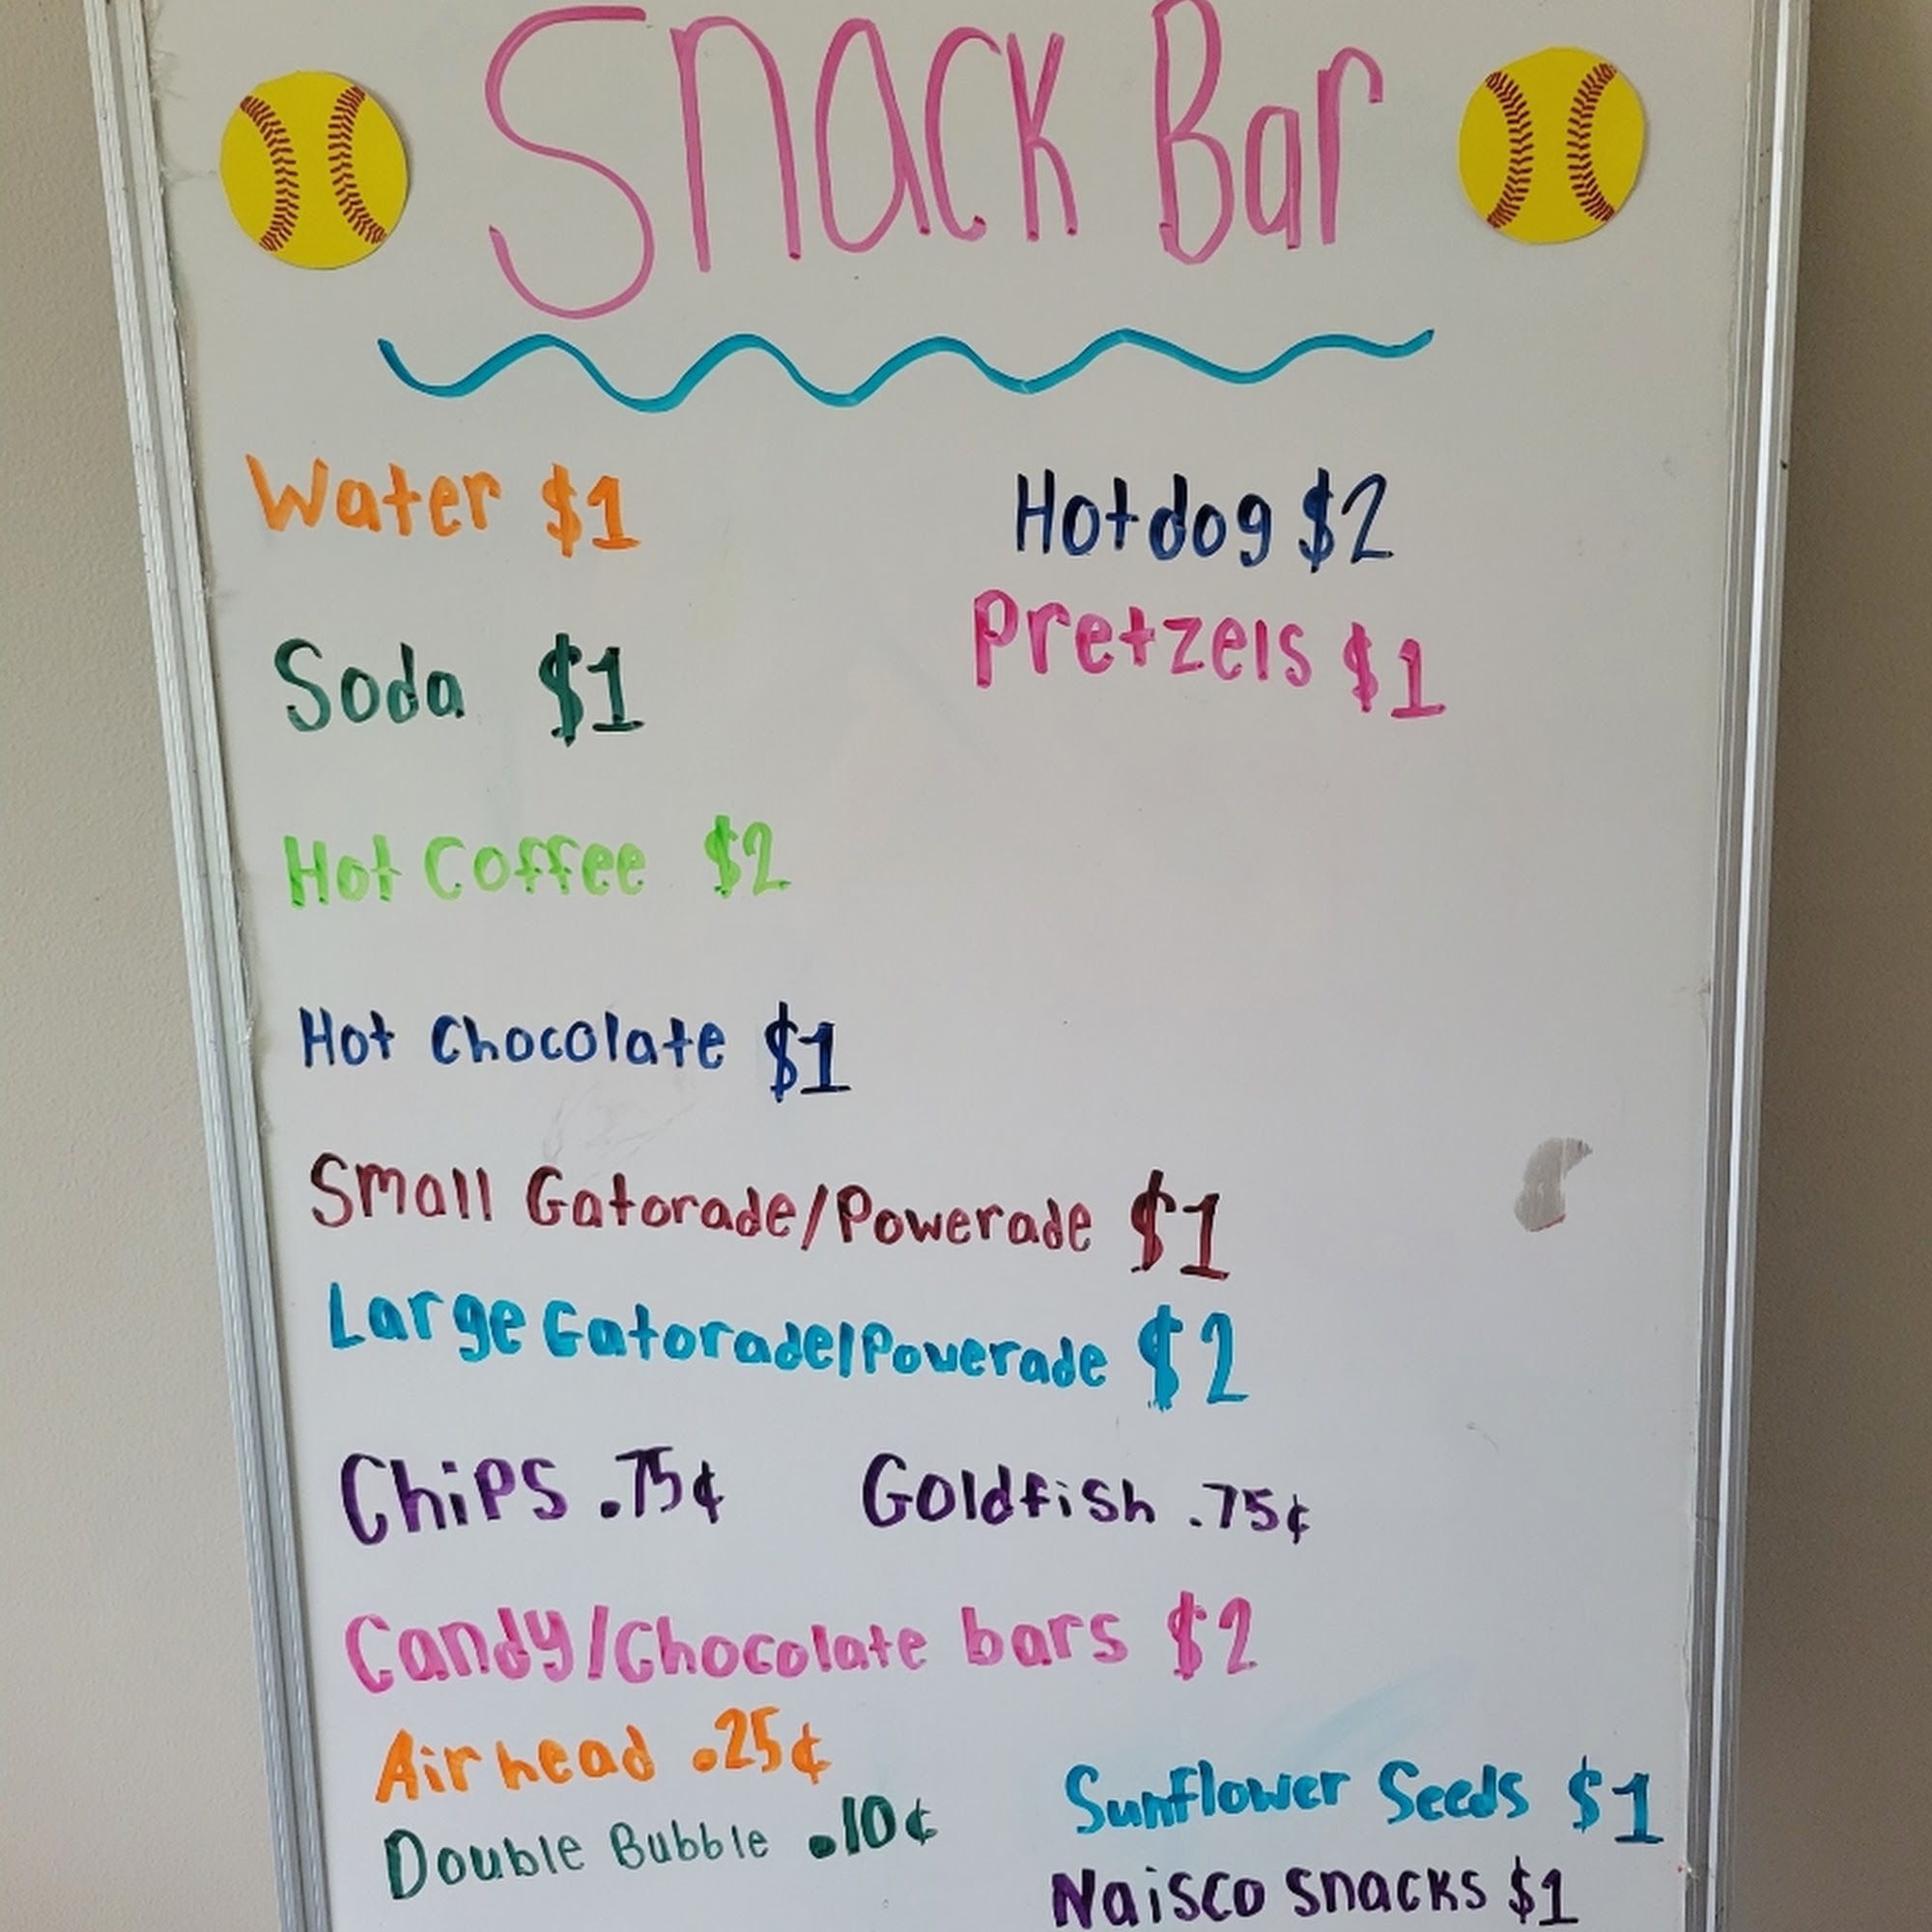 Snack Bar
Water $1
Hotdog $2
Pretzels $1
Soda $1
Hot Coffee $2
Hot Chocolate $1
Small Gatorade/Powerade $1
Large Gatorade/Powerade $2
Chips .75¢ Goldfish .75¢
Candy/Chocolate bars $2
Airhead .25¢
Double Bubble .10¢
Sunflower Seeds $1
Naisco snacks $1